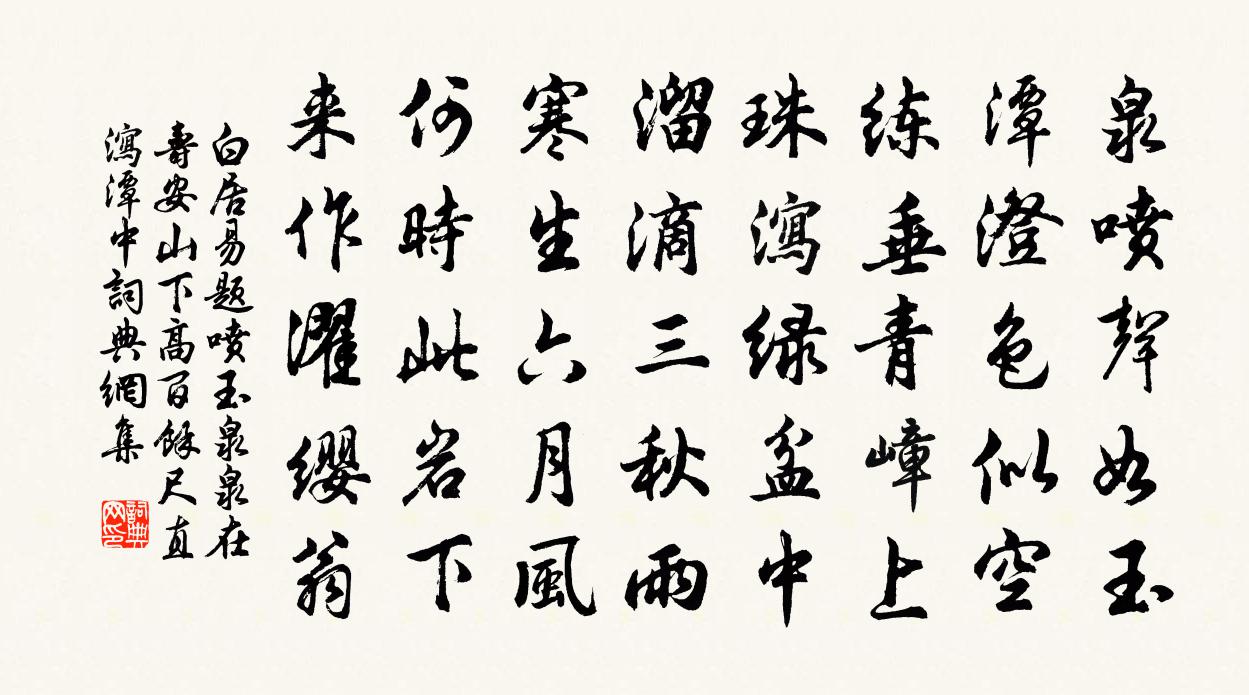 泉喷聲如玉
潭澄色似空
练垂青嶂上
珠瀉绿盆中
溜滴三秋雨
寒生六月風
何時此岩下
来作濯缨翁
白居易题喷玉泉泉在
壽安山下高百餘尺直
瀉潭中詞典網集
詞典网印